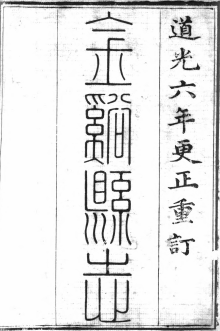 道光六年更正重訂
金谿縣志